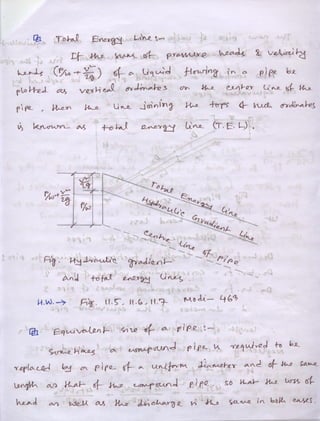 Total Energy Line :-
If the sum of pressure heads & velocity
heads (P/ω + v²/2g) of a liquid flowing in a pipe be
plotted as vertical ordinates on the center line of the
pipe, then the line joining the tops of such ordinates
is known as total energy line (T.E.L).
v²/2g
P/ω + v²/2g
P/ω
Total Energy Line
Hydraulic Gradient Line
Centre Line of pipe
Fig: Hydraulic gradient
and total energy lines
H.W.→ Fig. 11.5, 11.6, 11.7 Modi- 463
Equivalent size of a pipe :-
Sometimes a compound pipe is required to be
replaced by a pipe of a uniform diameter and of the same
length as that of the compound pipe so that the loss of
head as well as the discharge is the same in both cases.